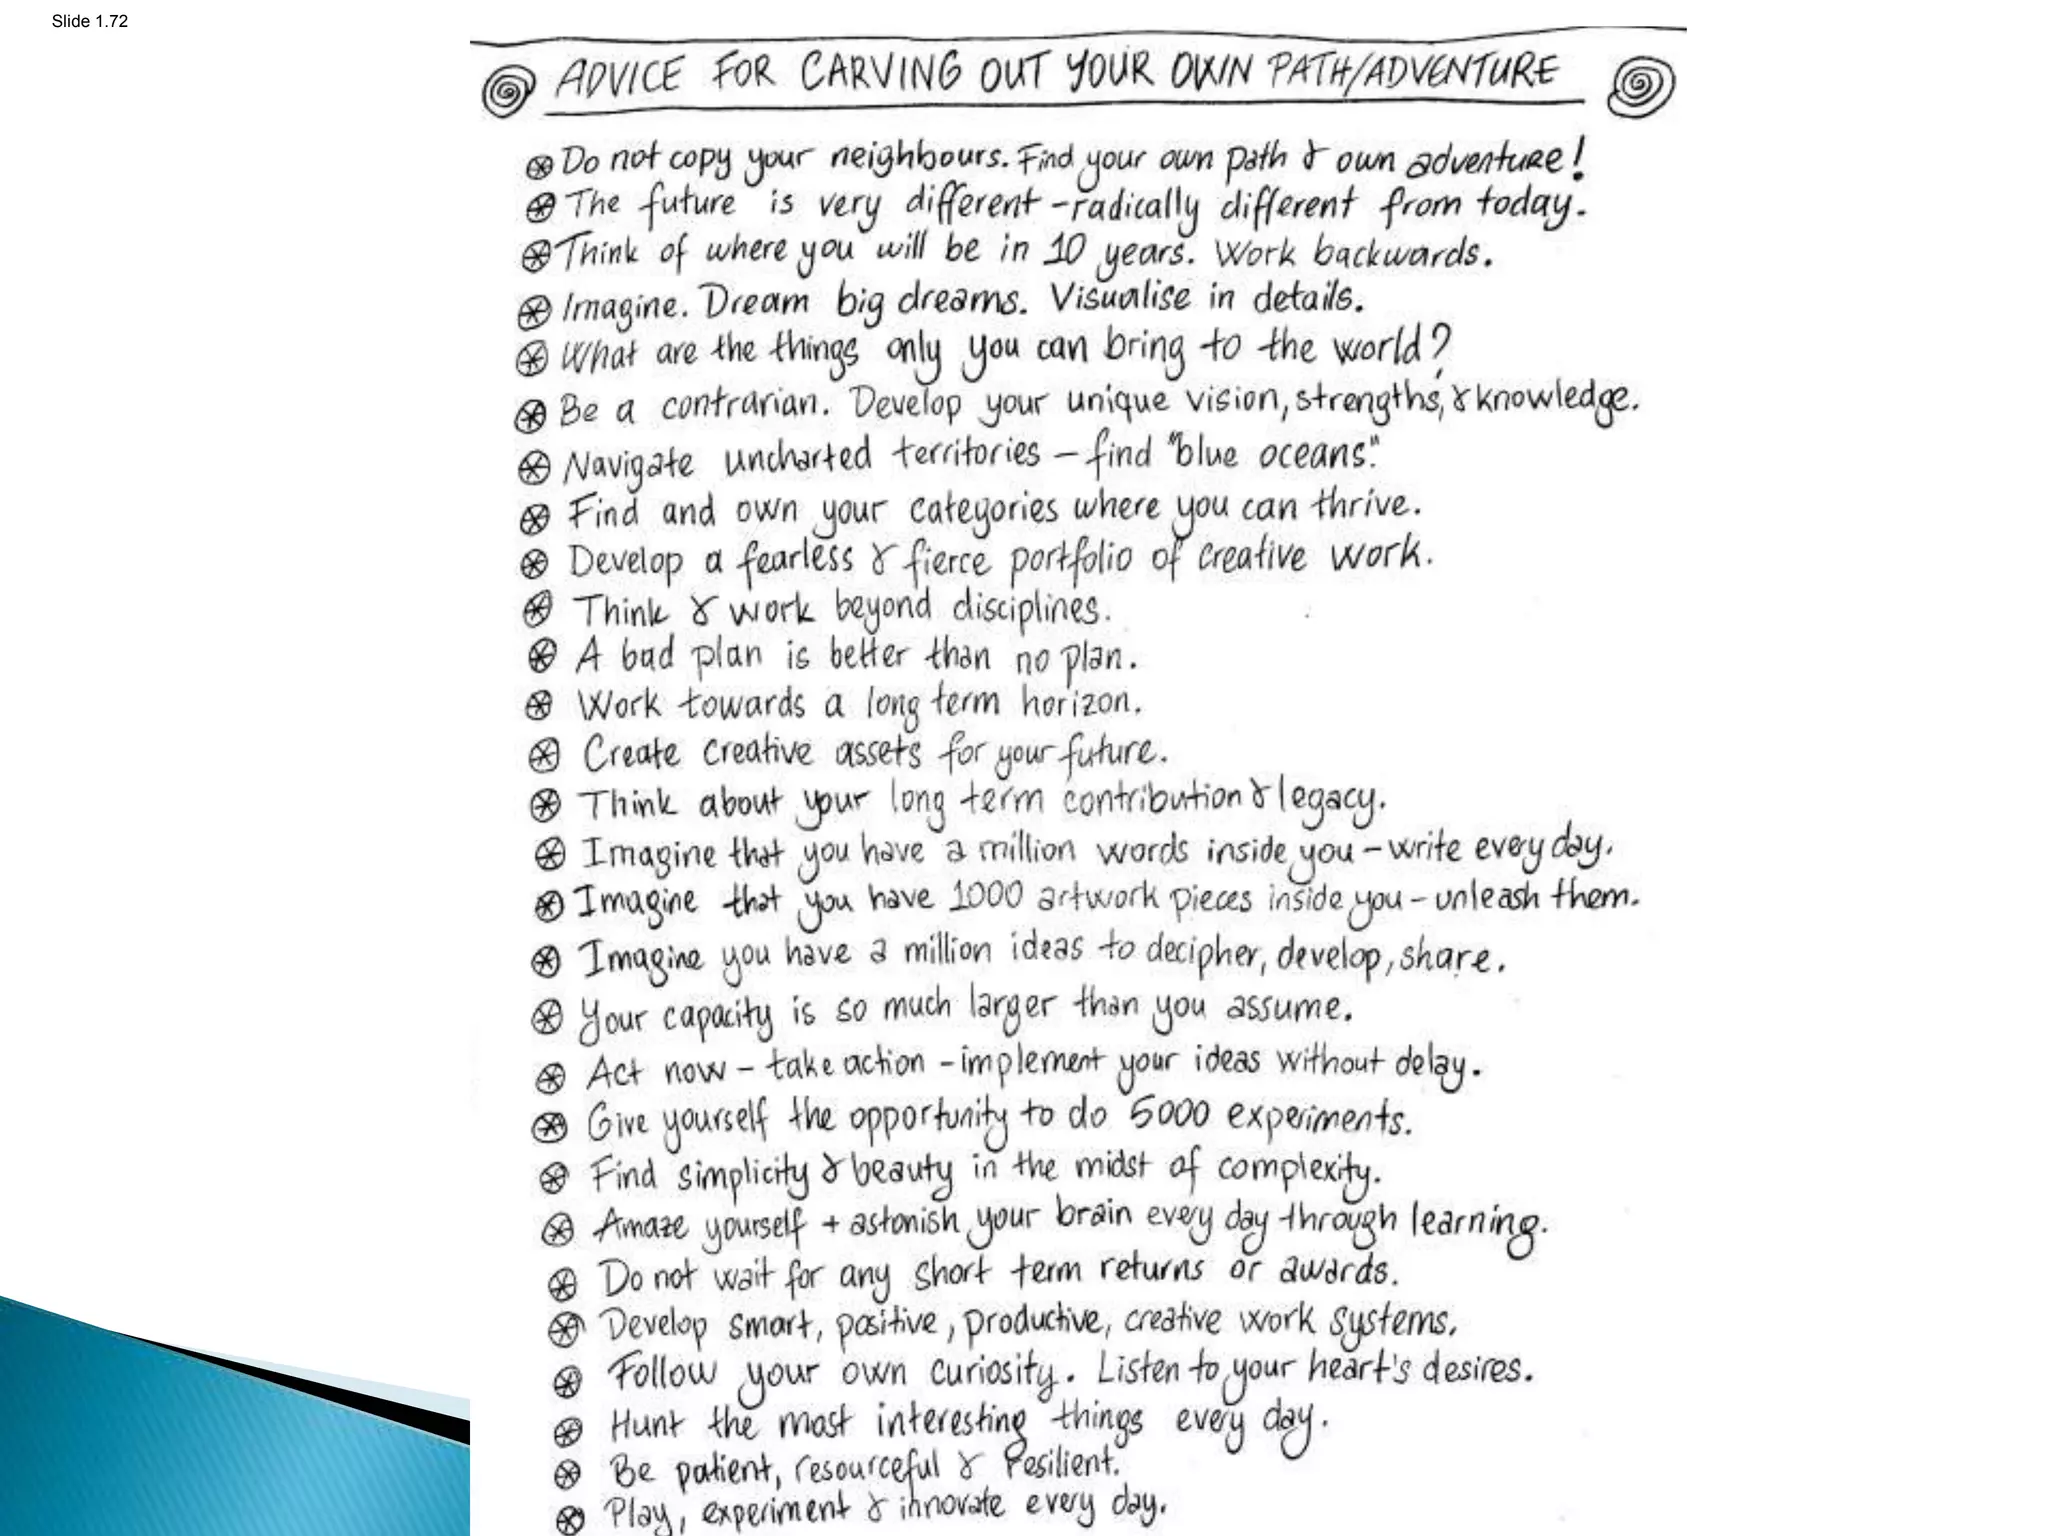 Slide 1.72
ADVICE FOR CARVING OUT YOUR OWN PATH/ADVENTURE
Do not copy your neighbours. Find your own path & own adventure!
The future is very different - radically different from today.
Think of where you will be in 10 years. Work backwards.
Imagine. Dream big dreams. Visualise in details.
What are the things only you can bring to the world?
Be a contrarian. Develop your unique vision, strengths, & knowledge.
Navigate uncharted territories – find "blue oceans".
Find and own your categories where you can thrive.
Develop a fearless & fierce portfolio of creative work.
Think & work beyond disciplines.
A bad plan is better than no plan.
Work towards a long term horizon.
Create creative assets for your future.
Think about your long term contribution & legacy.
Imagine that you have a million words inside you – write every day.
Imagine that you have 1000 artwork pieces inside you – unleash them.
Imagine you have a million ideas to decipher, develop, share.
Your capacity is so much larger than you assume.
Act now – take action – implement your ideas without delay.
Give yourself the opportunity to do 5000 experiments.
Find simplicity & beauty in the midst of complexity.
Amaze yourself + astonish your brain every day through learning.
Do not wait for any short term returns or awards.
Develop smart, positive, productive, creative work systems.
Follow your own curiosity. Listen to your heart's desires.
Hunt the most interesting things every day.
Be patient, resourceful & resilient.
Play, experiment & innovate every day.